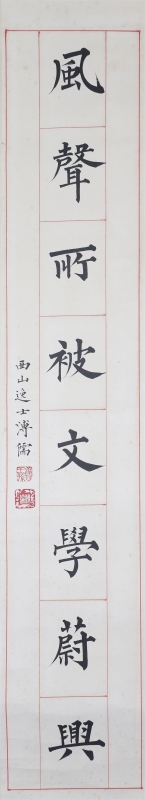 風聲所被文學蔚興
西山逸士溥儒